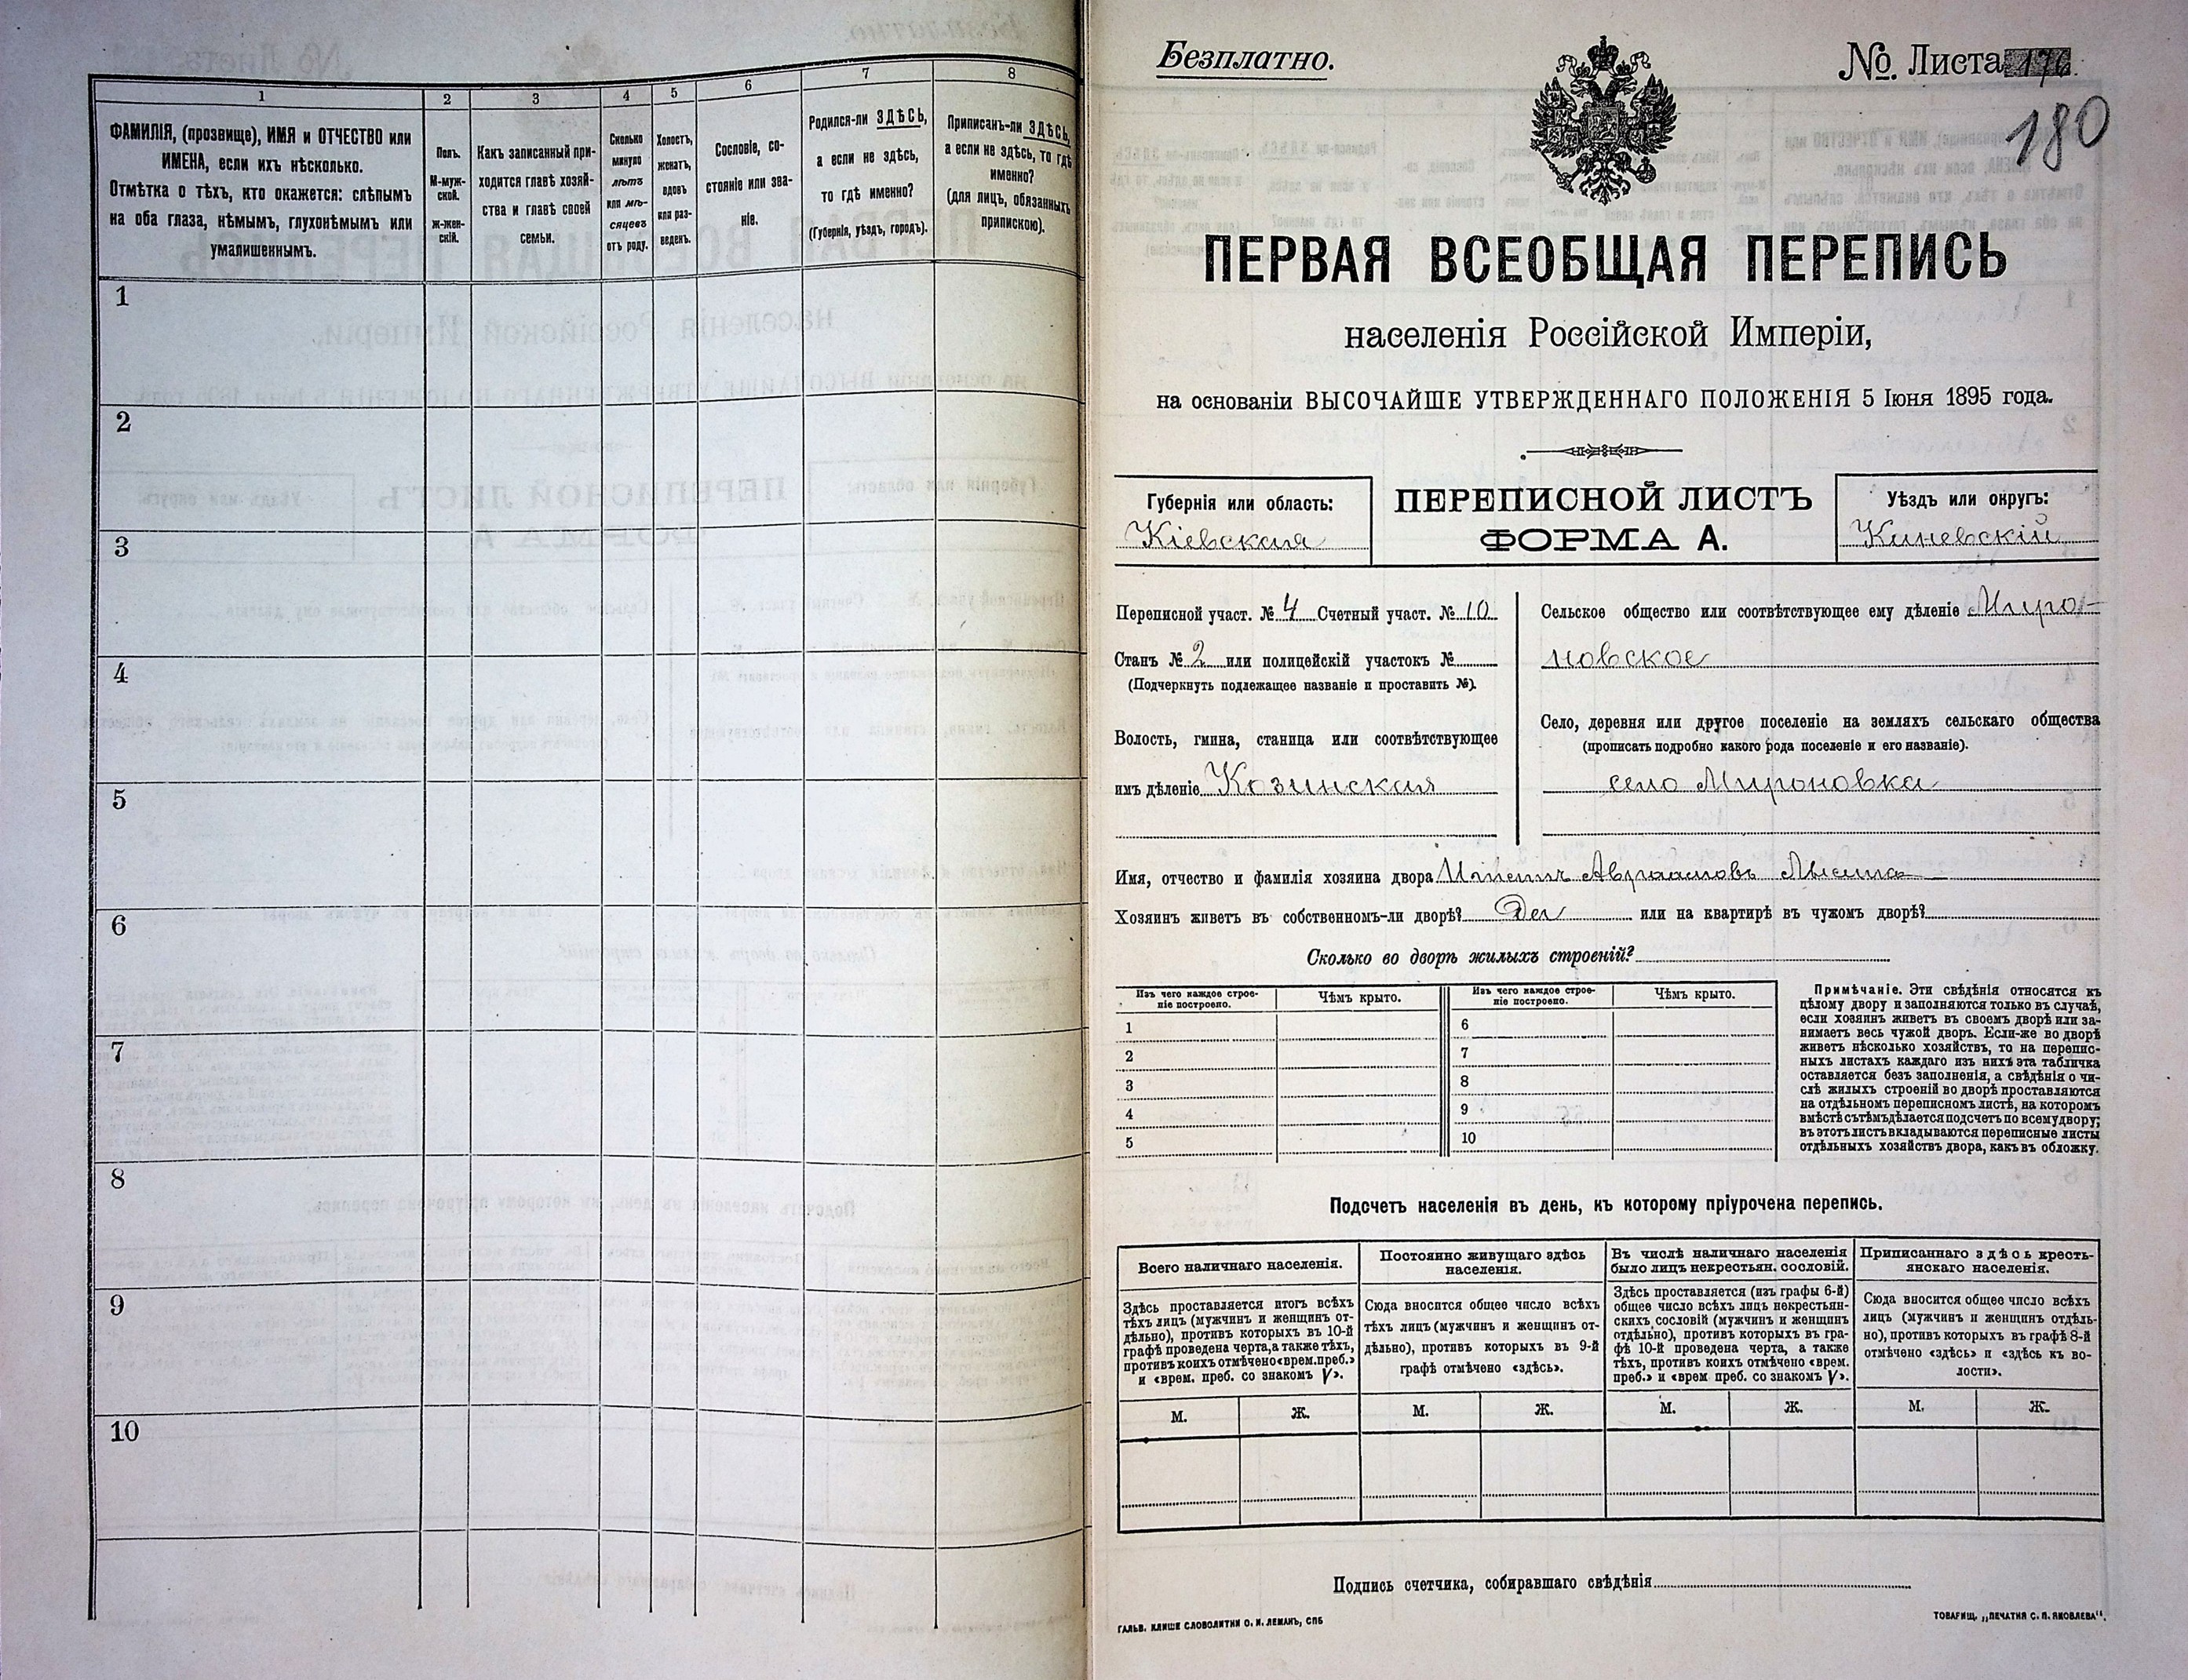 1
2
3
4
5
6
7
8
ФАМИЛІЯ, (прозвище), ИМЯ и ОТЧЕСТВО или
ИМЕНА, если ихъ нѣсколько.
Отмѣтка о тѣхъ, кто окажется: слѣпымъ
на оба глаза, нѣмымъ, глухонѣмымъ или
умалишеннымъ.
Полъ.
М-муж-
ской.
ж-жен-
скій.
Какъ записанный при-
ходится главѣ хозяй-
ства и главѣ своей
семьи.
Сколько
минуло
лѣтъ
или мѣ-
сяцевъ
отъ роду.
Холостъ,
женатъ,
вдовъ
или раз-
веденъ.
Сословіе, со-
стояніе или зва-
ніе.
Родился-ли ЗДѢСЬ,
а если не здѣсь,
то гдѣ именно?
(Губернія, уѣздъ, городъ).
Приписанъ-ли ЗДѢСЬ,
а если не здѣсь, то гдѣ
именно?
(для лицъ, обязанныхъ
припискою).
1
2
3
4
5
6
7
8
9
10
Безплатно.
№ Листа 176.
180
ПЕРВАЯ ВСЕОБЩАЯ ПЕРЕПИСЬ
населенія Россійской Имперіи,
на основаніи ВЫСОЧАЙШЕ УТВЕРЖДЕННАГО ПОЛОЖЕНІЯ 5 Іюня 1895 года.
Губернія или область:
Кіевская
ПЕРЕПИСНОЙ ЛИСТЪ
ФОРМА А.
Уѣздъ или округъ:
Каневскій
Переписной участ. № 4 Счетный участ. № 10
Станъ № 2 или полицейскій участокъ №
(Подчеркнуть подлежащее названіе и проставить №).
Волость, гмина, станица или соотвѣтствующее
имъ дѣленіе Козинская
Сельское общество или соотвѣтствующее ему дѣленіе Миро-
новское
Село, деревня или другое поселеніе на земляхъ сельскаго общества
(прописать подробно какого рода поселеніе и его названіе).
село Мироновка
Имя, отчество и фамилія хозяина двора Авраамовъ
Хозяинъ живетъ въ собственномъ-ли дворѣ? Да или на квартирѣ въ чужомъ дворѣ?
Сколько во дворѣ жилыхъ строеній?
Изъ чего каждое строе-
ніе построено.
Чѣмъ крыто.
Изъ чего каждое строе-
ніе построено.
Чѣмъ крыто.
1
2
3
4
5
6
7
8
9
10
Примѣчаніе. Эти свѣдѣнія относятся къ
цѣлому двору и заполняются только въ случаѣ,
если хозяинъ живетъ въ своемъ дворѣ или за-
нимаетъ весь чужой дворъ. Если-же во дворѣ
живетъ нѣсколько хозяйствъ, то на перепис-
ныхъ листахъ каждаго изъ нихъ эта табличка
оставляется безъ заполненія, а свѣдѣнія о чи-
слѣ жилыхъ строеній во дворѣ проставляются
на отдѣльномъ переписномъ листѣ, на которомъ
вмѣстѣ съ тѣмъ дѣлается подсчетъ по всему двору;
въ этотъ листъ вкладываются переписные листы
отдѣльныхъ хозяйствъ двора, какъ въ обложку.
Подсчетъ населенія въ день, къ которому пріурочена перепись.
Всего наличнаго населенія.
Постоянно живущаго здѣсь
населенія.
Въ числѣ наличнаго населенія
было лицъ некрестьян. сословій.
Приписаннаго здѣсь кресть-
янскаго населенія.
Здѣсь проставляется итогъ всѣхъ
тѣхъ лицъ (мужчинъ и женщинъ от-
дѣльно), противъ которыхъ въ 10-й
графѣ проведена черта, а также тѣхъ,
противъ коихъ отмѣчено «врем. преб.»
и «врем. преб. со знакомъ V».
Сюда вносится общее число всѣхъ
тѣхъ лицъ (мужчинъ и женщинъ от-
дѣльно), противъ которыхъ въ 9-й
графѣ отмѣчено «здѣсь».
Здѣсь проставляется (изъ графы 6-й)
общее число всѣхъ лицъ некрестьян-
скихъ сословій (мужчинъ и женщинъ
отдѣльно), противъ которыхъ въ гра-
фѣ 10-й проведена черта, а также
тѣхъ, противъ коихъ отмѣчено «врем.
преб.» и «врем преб. со знакомъ V».
Сюда вносится общее число всѣхъ
лицъ (мужчинъ и женщинъ отдѣль-
но), противъ которыхъ въ графѣ 8-й
отмѣчено «здѣсь» и «здѣсь къ во-
лости».
М.
Ж.
М.
Ж.
М.
Ж.
М.
Ж.
Подпись счетчика, собиравшаго свѣдѣнія
ГАЛЬВ. КЛИШЕ СЛОВОЛИТНИ О. И. ЛЕМАНЪ, СПБ
ТОВАРИЩ. „ПЕЧАТНЯ С. П. ЯКОВЛЕВА".